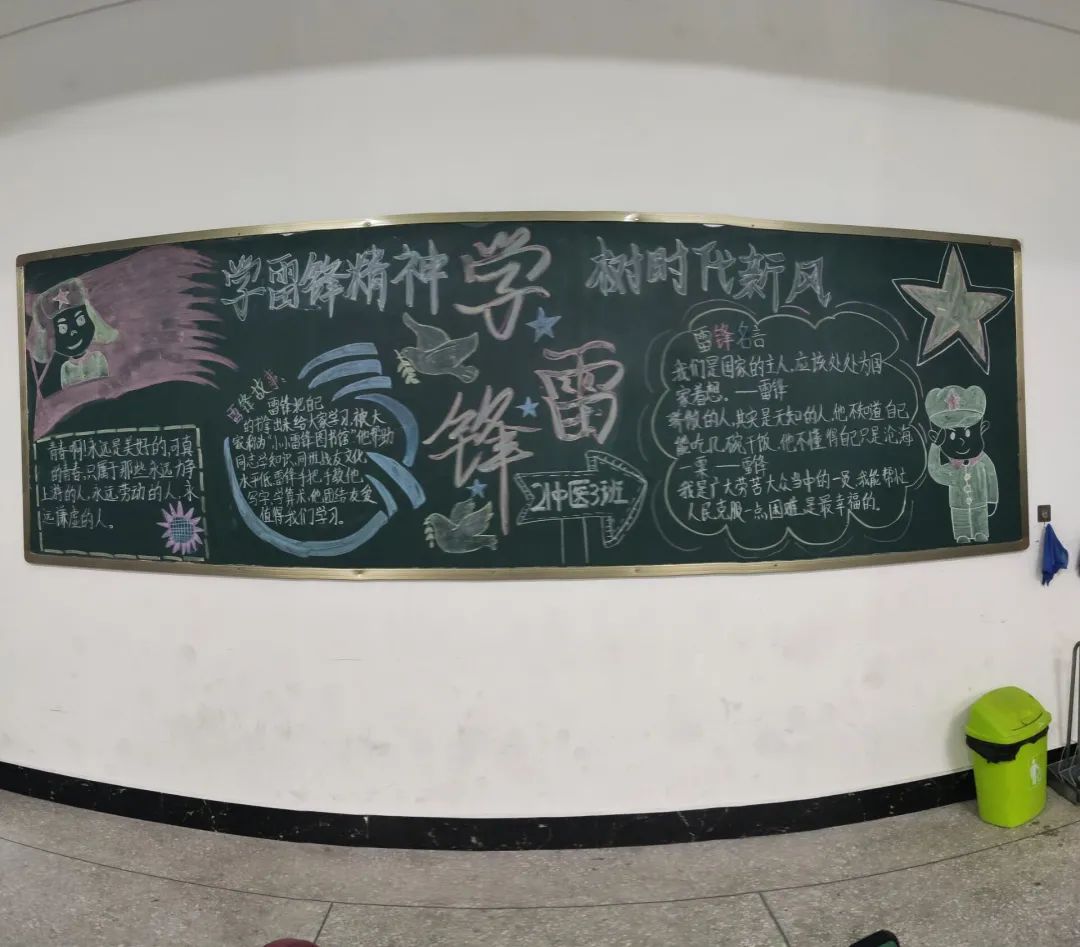 学雷锋精神
学
雷
锋
树时代新风
青春啊!永远是美好的,可真
的青春,只属于那些永远力争
上游的人,永远劳动的人,永
远谦虚的人。
雷锋故事:
雷锋把自
的书拿出来给大家学习,被大
家称为“小小雷锋图书馆”他帮助
同志学知识,同班战友文化
水平低,雷锋手把手教他,
写字,学算术,他团结友爱
值得我们学习。
21中医3班
雷锋名言
我们是国家的主人,应该处处为国
家着想.——雷锋
骄傲的人,其实是无知的人,他不知道自己
能吃几碗干饭,他不懂得自己只是沧海
一粟——雷锋
我是广大劳苦大众当中的一员,我能帮忙
人民克服一点困难,是最幸福的。